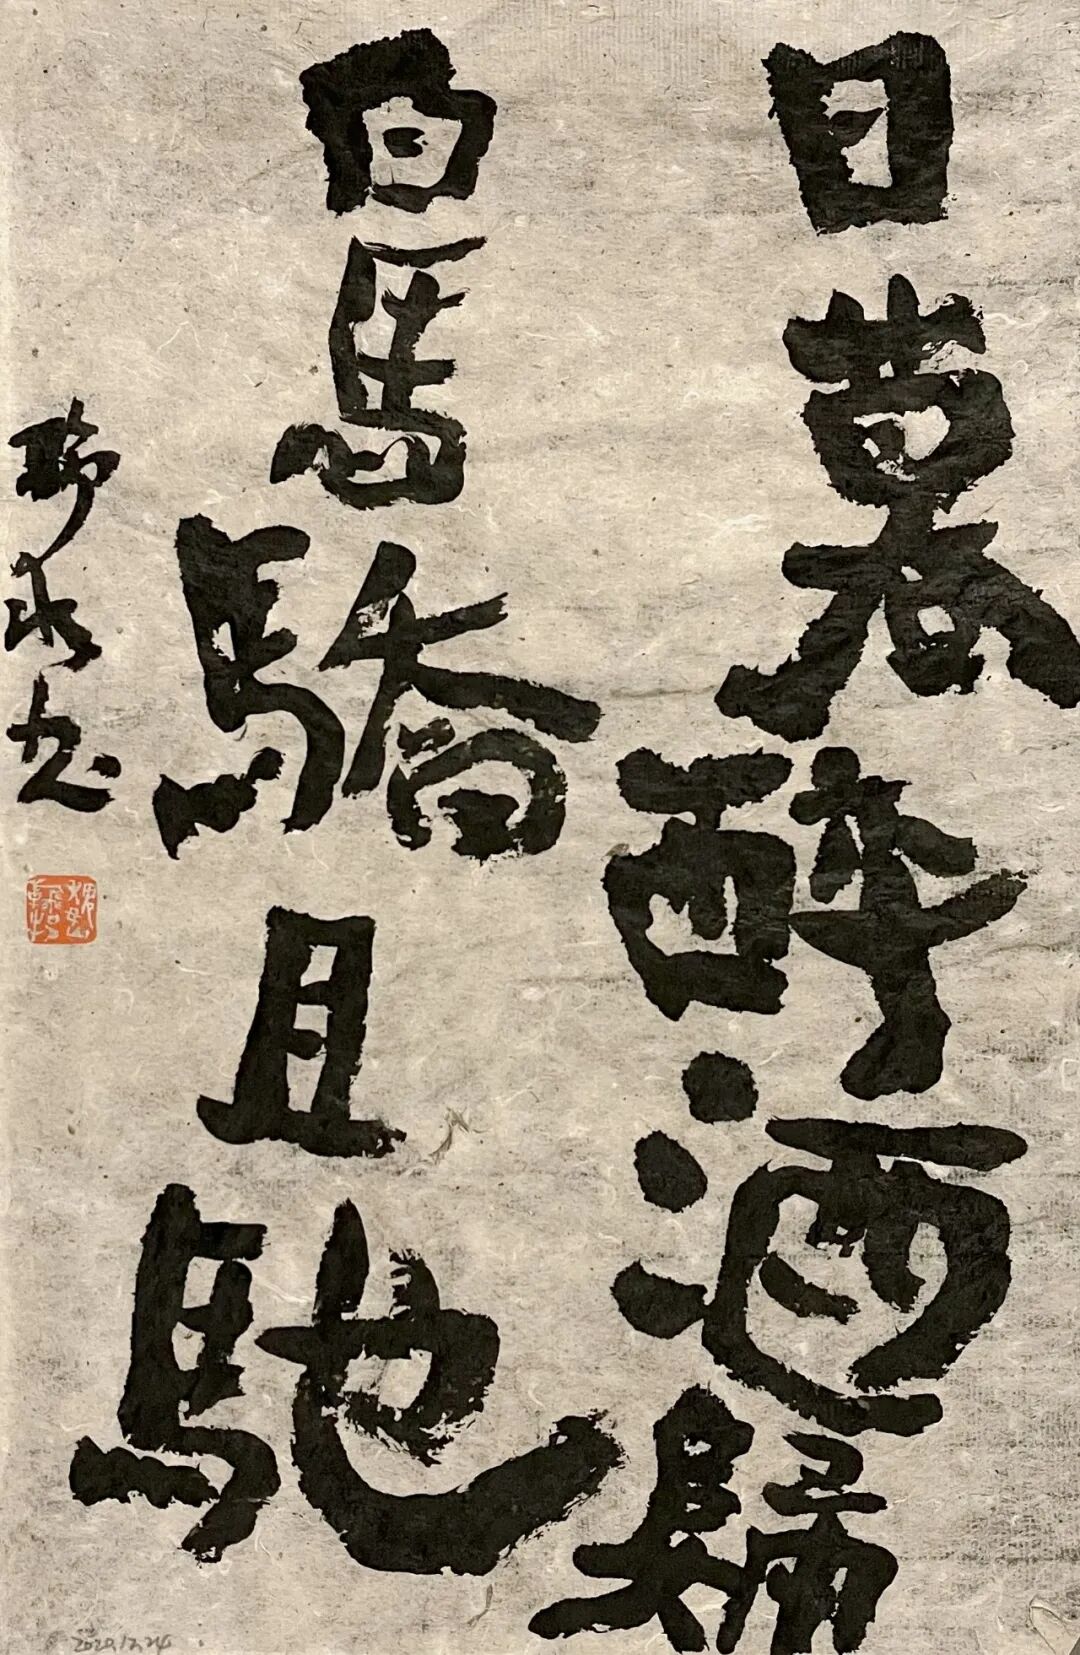 日暮醉酒歸
白馬驕且馳
2020.12.24